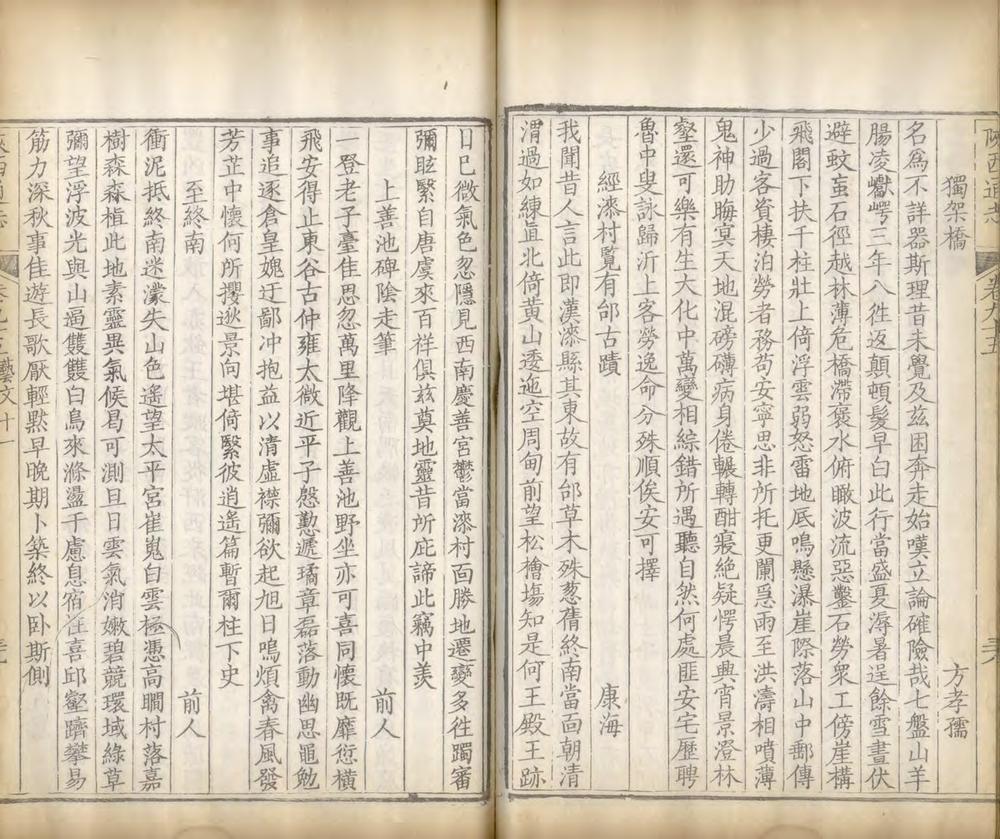 陝西通志
卷九十五
獨架橋
方孝孺
名爲不詳器斯理昔未覺及茲困奔走始嘆立論確險哉七盤山羊
腸凌巘崿三年八徃返顛頓髮早白此行當盛夏溽暑逞餘雪晝伏
避蚊䖟石徑越林薄危橋滯褒水俯瞰波流惡鑿石勞衆工傍崖構
飛閣下扶千柱壯上倚浮雲弱怒雷地底鳴懸瀑崖際落山中郵傳
少過客資棲泊勞者務苟安寧思非所托更闌風雨至洪濤相噴薄
鬼神助晦冥天地混磅礴病身倦輾轉酣寢絶疑愕晨興宵景澄林
壑還可樂有生大化中萬變相綜錯所遇聽自然何處匪安宅歷聘
魯中叟詠歸沂上客勞逸命分殊順俟安可擇
經漆村覽有邰古蹟
康海
我聞昔人言此即漢漆縣其東故有邰草木殊葱蒨終南當面朝清
渭過如練眞北倚黃山逶迤空周甸前望松檜塲知是何王殿王跡
日已微氣色忽隱見西南慶善宮鬱當漆村面勝地遷變多徃躅審
彌眩緊自唐虞來百祥俱兹奠地靈昔所庇諦此竊中羨
上善池碑陰走筆
前人
一登老子臺佳思忽萬里降觀上善池野坐亦可喜同懷既靡愆橫
飛安得止東谷古仲雍太微近平子慇懃遞璚章磊落動幽思黽勉
事追逐倉皇媿迂鄙冲抱益以清虛襟彌欲起旭日鳴煩禽春風發
芳芷中懷何所攖逖景向堪倚緊彼逍遙篇暫爾柱下史
至終南
前人
衝泥抵終南迷濛失山色遙望太平宮崔嵬白雲極憑高瞷村落嘉
樹森森植此地素靈異氣候曷可測旦日雲氣消嫩碧競環域綠草
彌望浮波光與山逼雙雙白鳥來滌盪千慮息宿徃喜邱壑躋攀易
筋力深秋事佳遊長歌厭輕黙早晚期卜築終以卧斯側
陝西通志
卷九十五
藝文十一